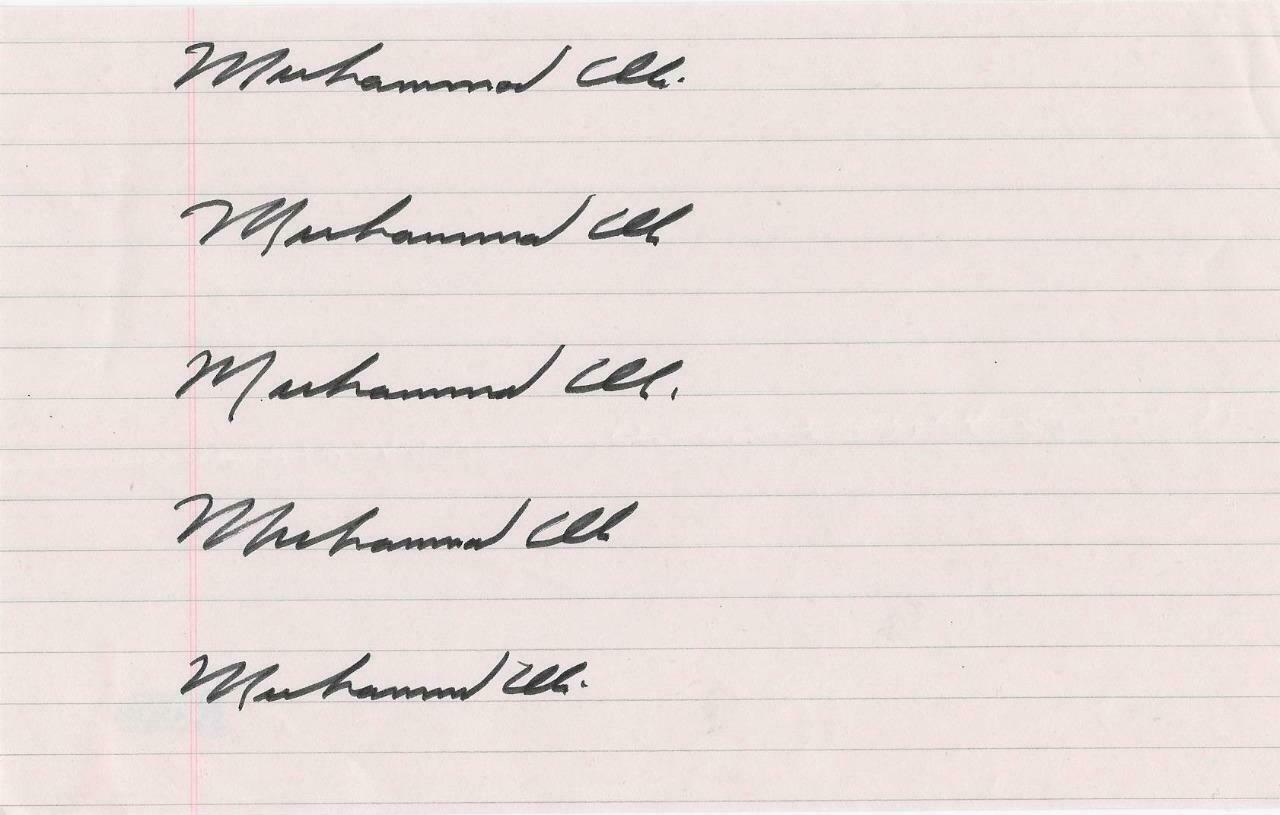 Muhammad Ali.
Muhammad Ali
Muhammad Ali.
Muhammad Ali
Muhammad Ali.